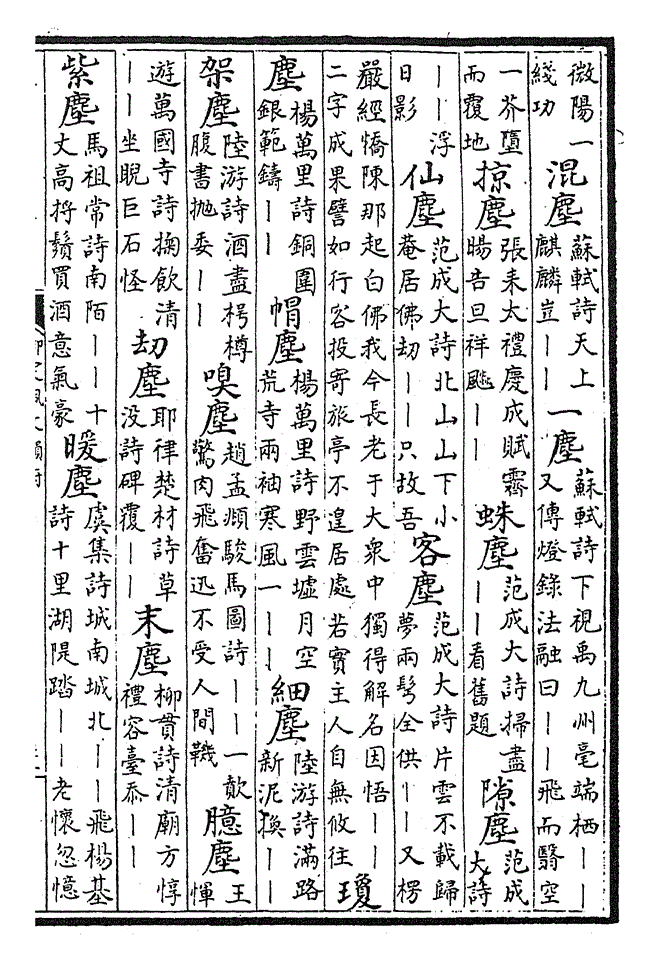 微陽一綫功 混塵 蘇軾詩天上麒麟豈｜｜ 一塵 蘇軾詩下視禹九州毫端栖｜｜又傳燈錄法融曰｜｜飛而翳空
一芥墮而覆地 掠塵 張耒太禮慶成賦霽暘告旦祥飈｜｜ 蛛塵 范成大詩掃盡｜｜看舊題 隙塵 范成大詩
｜｜浮日影 仙塵 范成大詩北山山下小菴居佛劫｜｜只故吾 客塵 范成大詩片雲不載歸夢兩髩全供｜｜又楞
嚴經憍陳那起白佛我今長老于大衆中獨得解名因悟｜｜二字成果譬如行客投寄旅亭不遑居處若實主人自無攸往 瓊
塵 楊萬里詩銅圍銀範鑄｜｜ 帽塵 楊萬里詩野雲墟月空荒寺兩袖寒風一｜｜ 細塵 陸游詩滿路新泥換｜｜
架塵 陸游詩酒盡枵樽腹書抛委｜｜ 嗅塵 趙孟頫駿馬圖詩｜｜一歕驚肉飛奮迅不受人間鞿 臆塵 王惲
遊萬國寺詩掬飲清｜｜坐睨巨石怪 劫塵 耶律楚材詩草没詩碑覆｜｜ 末塵 柳貫詩清廟方惇禮容臺忝｜｜
紫塵 馬祖常詩南陌｜｜十丈高捋鬚買酒意氣豪 暖塵 虞集詩城南城北｜｜飛楊基詩十里湖隄踏｜｜老懷忽憶